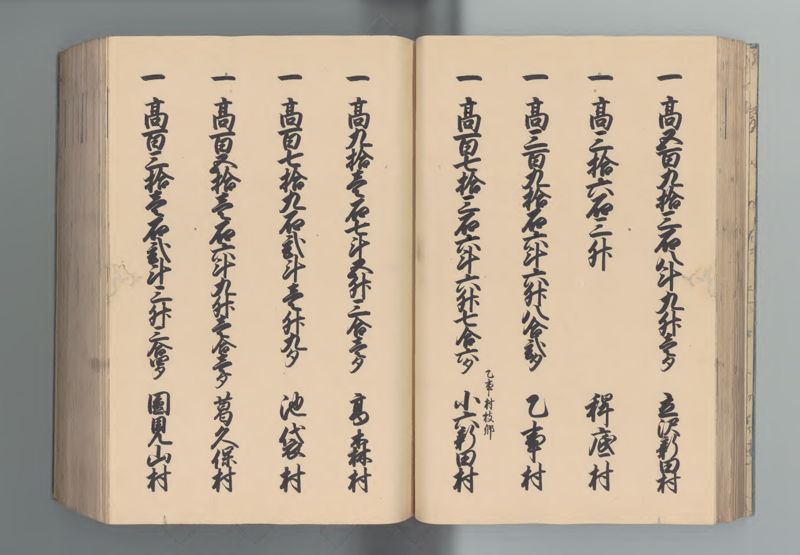 一 高五百九拾三石八斗九升壱夕 立沢新田村
一 高三拾六石三升 稗底村
一 高三百九拾石六斗六升八合弐夕 乙事村
乙事村枝郷
一 高百七拾三石六斗六升七合六夕 小六新田村
一 高九拾壱石七斗五升三合壱夕 高森村
一 高百七拾九石弐斗壱升九夕 池袋村
一 高百五拾壱石六斗九升壱合壱夕 葛久保村
一 高百三拾壱石弐斗三升三合四夕 国見山村